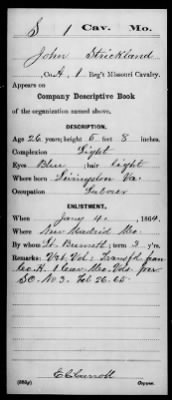 S | 1 | Cav. | Mo.
John Strickland
, Co. A, 1 Reg't Missouri Cavalry.
Appears on
Company Descriptive Book
of the organization named above.
DESCRIPTION.
Age 26 years; height 5 feet 8 inches.
Complexion Light
Eyes Blue; hair Light
Where born Livingston Va.
Occupation Laborer
ENLISTMENT.
When Jany 4, 1864.
Where New Madrid Mo.
By whom Lt. Burnett; term 3 y'rs.
Remarks: Vet. Vol: Transfd from
Co. H. 1 Cav. Mo. Vols. per
S.O. No 3. Feb 26. 65.
E C Carroll
Copyist.